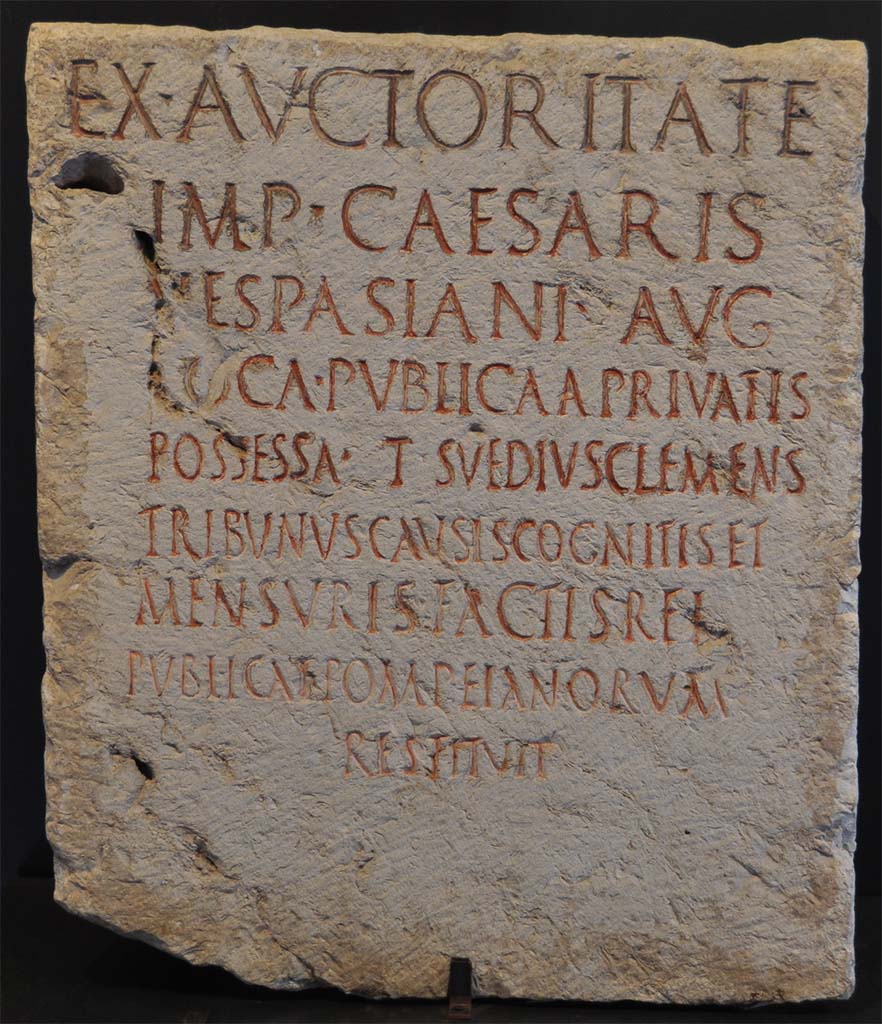 EX·AVCTORITATE
IMP·CAESARIS
VESPASIANI·AVG
LOCA·PVBLICA A PRIVATIS
POSSESSA·T SVEDIVS CLEMENS
TRIBVNVS CAVSIS COGNITIS ET
MENSVRIS FACTIS REI
PVBLICAE POMPEIANORVM
RESTITVIT